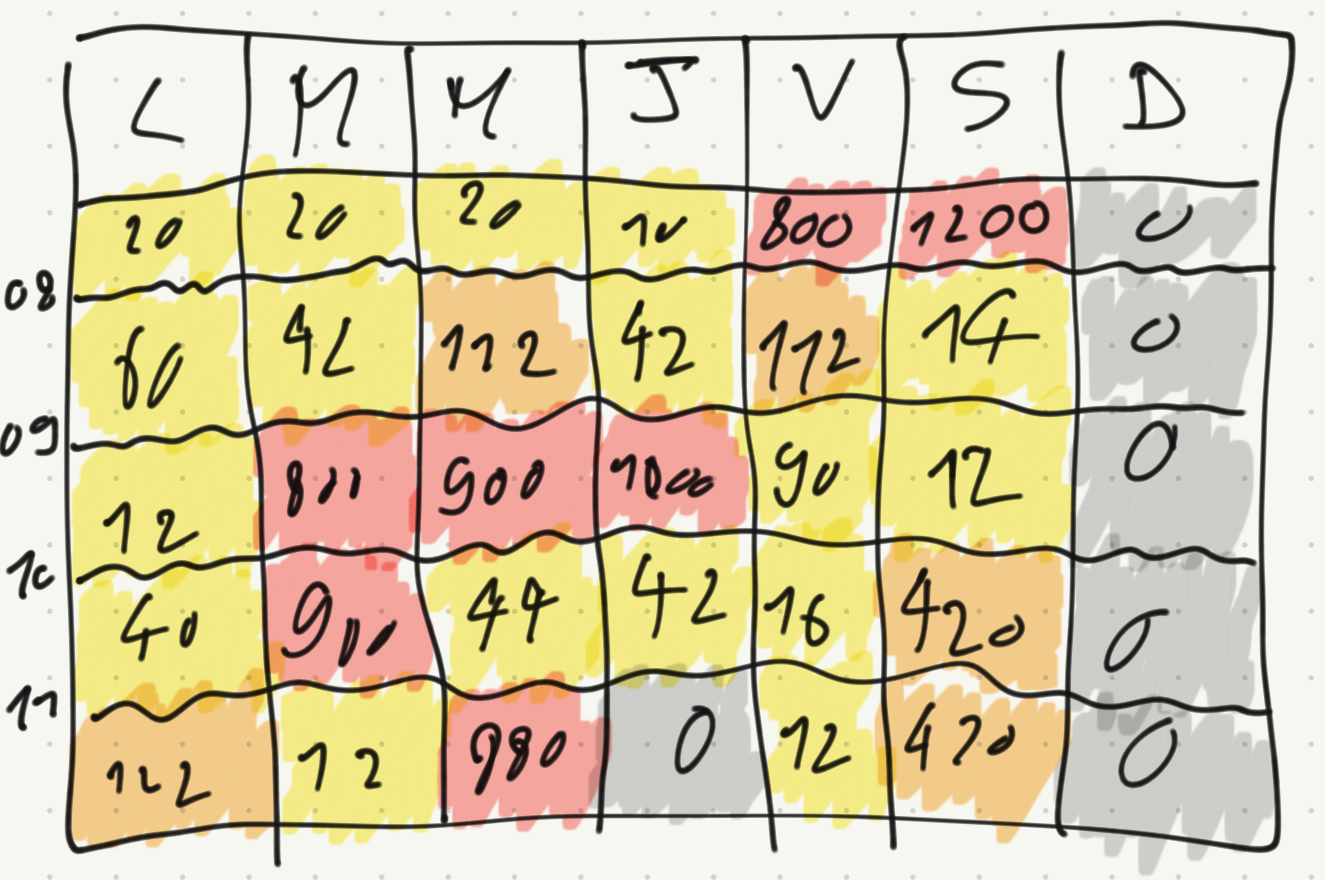 L M M J V S D
20 20 20 10 800 1200 0
08
60 42 112 42 112 14 0
09
12 800 900 1000 90 12 0
10
40 900 44 42 16 420 0
11
122 12 980 0 12 420 0